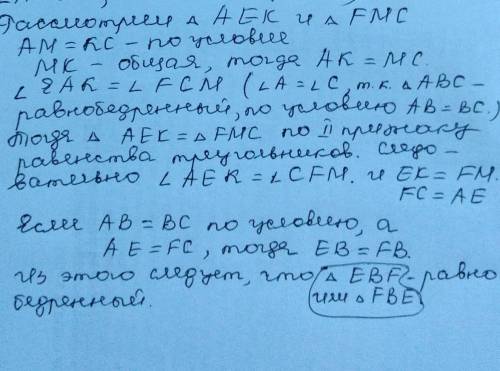 Рассмотрим △ AEK и △ FMC
AM = KC - по условие
MK - общая, тогда AK = MC.
∠ EAK = ∠ FCM (∠A = ∠C, т.к. △ABC -
равнобедренный, по условию AB = BC.)
Тогда △ AEK = △FMC по II признаку
равенства треугольников. Следо-
вательно ∠ AEK = ∠CFM. и EK = FM.
FC = AE
Если AB = BC по условию, а
AE = FC, тогда EB = FB.
из этого следует, что △ EBF - равно
бедренный.
или △ FBE